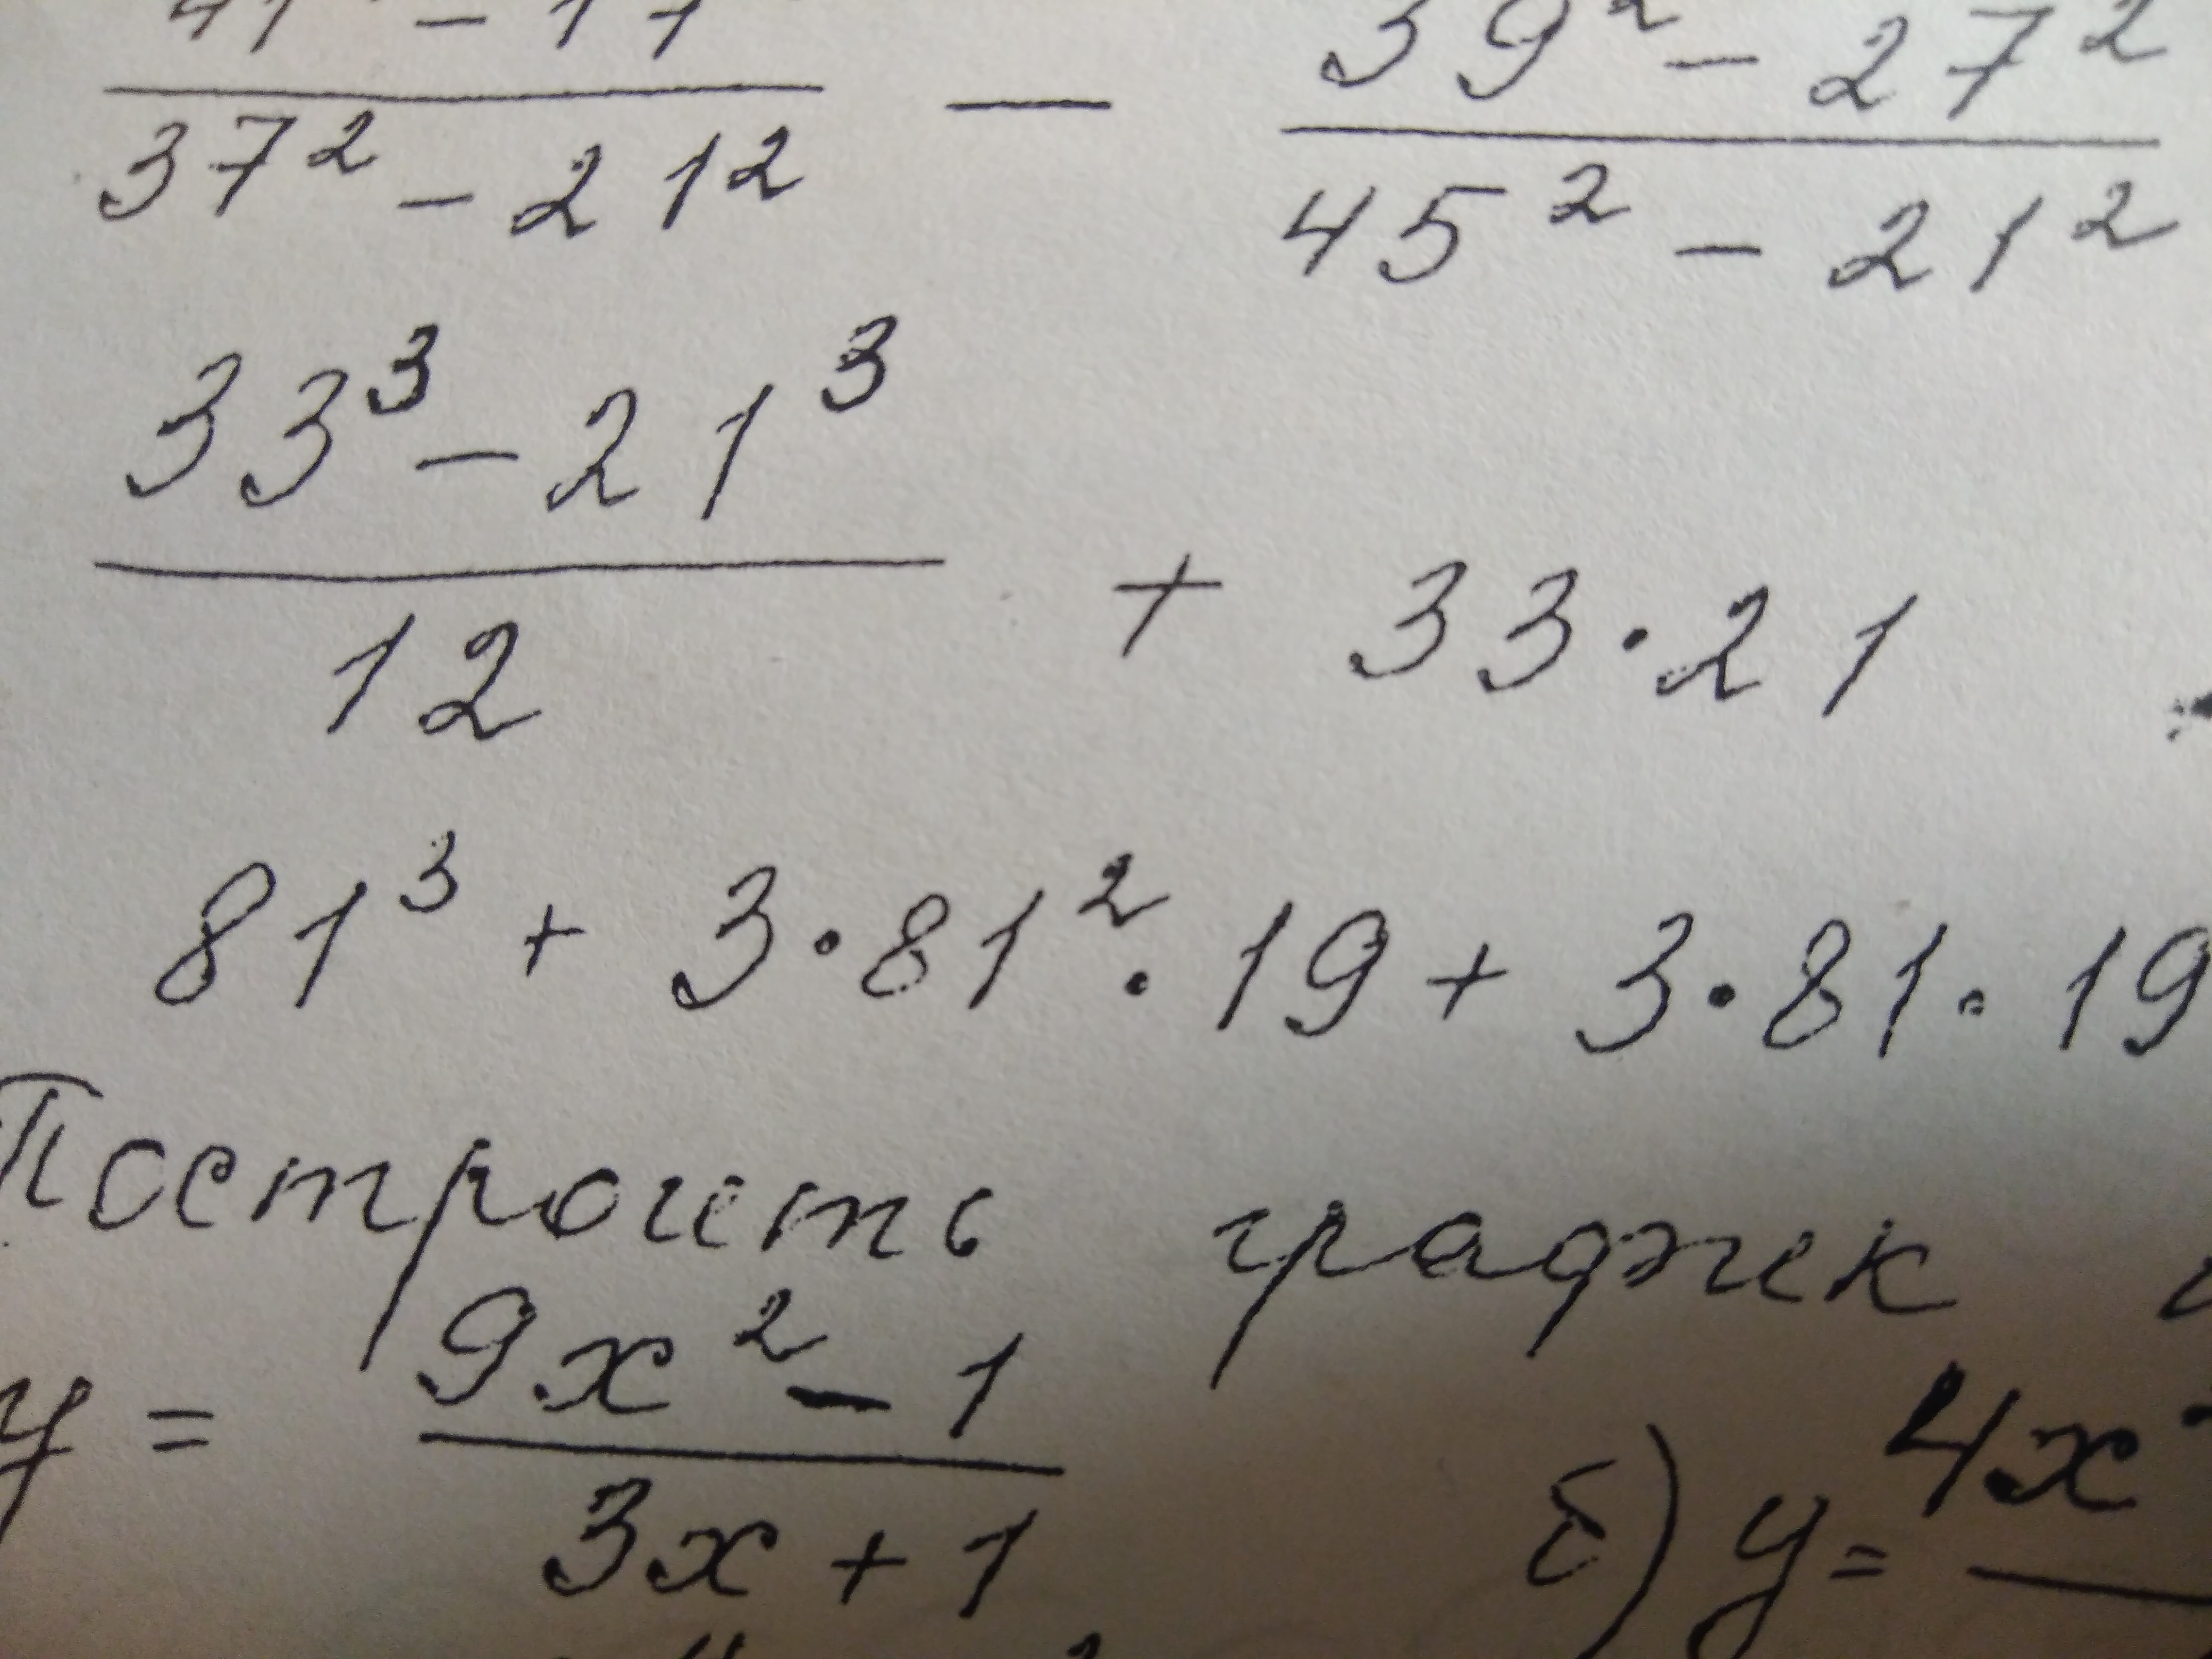 39² - 27²
—
37² - 21²
45² - 21²
33³ - 21³
12
+ 33·21
81³ + 3·81²·19 + 3·81·19
Построить график
y = 9x² - 1
3x + 1
б) y = 4x